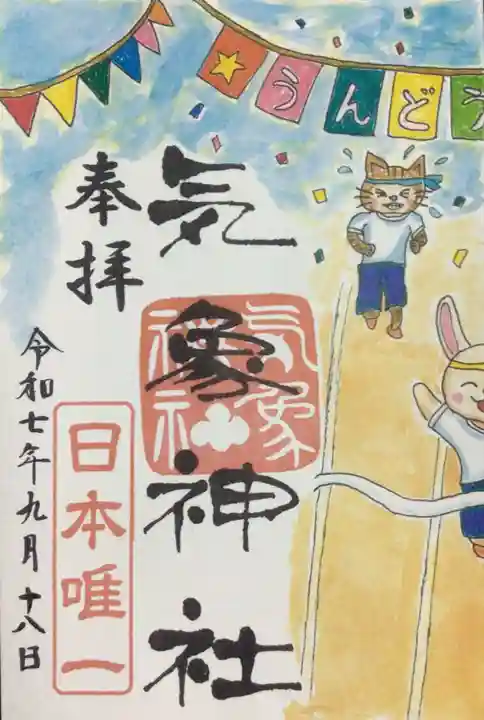 うんどう
気象神社
奉拝
気象神社
日本唯一
令和七年九月十八日